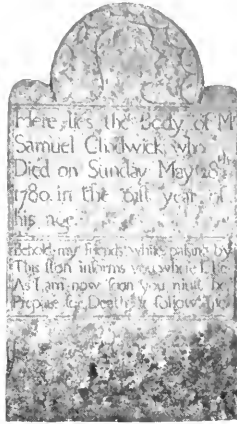 Here lies the Body of Mr
Samuel Chadwick who
Died on Sunday May 28th
1780 in the year of
his age
Behold my friends while passing by
This ston informs you where I lie
As I am now soon you must be
Prepare for Death & follow